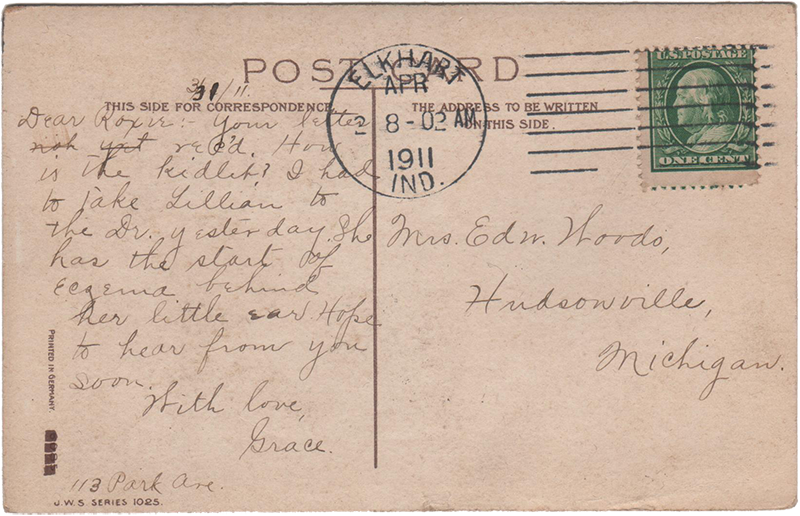 POST CARD
THIS SIDE FOR CORRESPONDENCE.
THE ADDRESS TO BE WRITTEN
ON THIS SIDE.
ELKHART
APR
2 8-02 AM
1911
IND.
U.S. POSTAGE
ONE CENT
3/31/11.
Dear Roxie:- Your letter
not yet rec'd. How
is the kidlit? I had
to take Lillian to
the Dr. yesterday. She
has the start of
Eczema behind
her little ear. Hope
to hear from you
soon.
With love,
Grace.
113 Park Ave.
Mrs. Edw. Woods,
Hudsonville,
Michigan.
PRINTED IN GERMANY.
J.W.S. SERIES 1025.